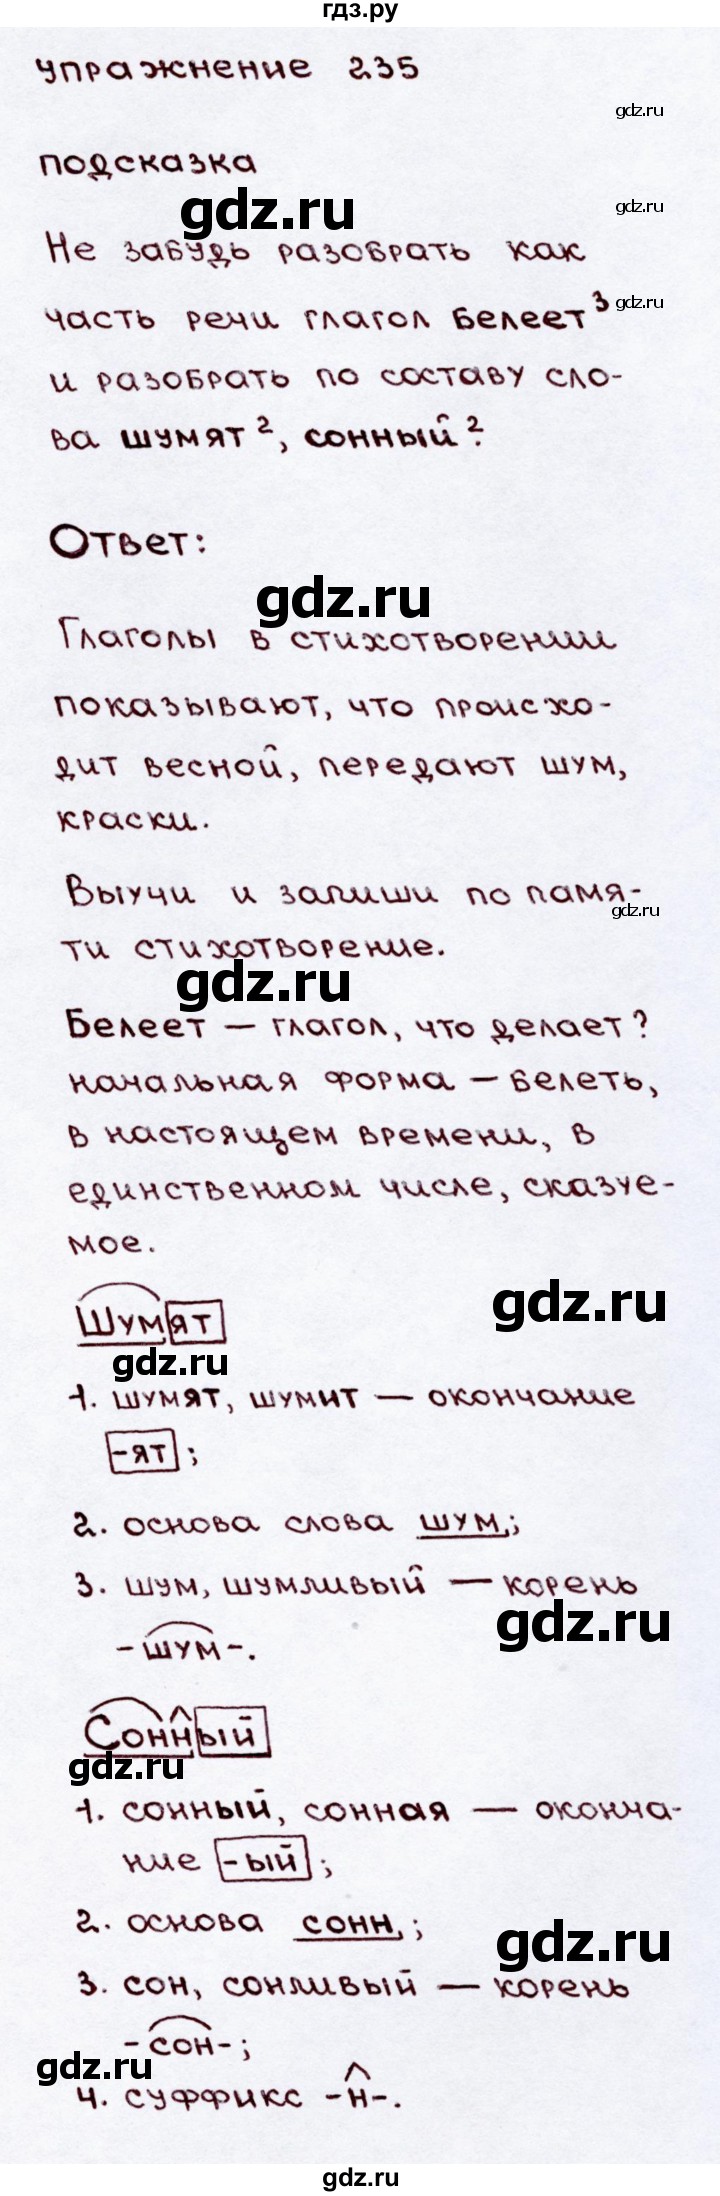 гдз.ру
упражнение 235
gdz.ru
подсказка
gdz.ru
gdz.ru
Не забудь разобрать как
часть речи глагол белеет³
gdz.ru
и разобрать по составу сло-
ва шумят², сонный².
Ответ:
gdz.ru
Глаголы в стихотворении
показывают, что происхо-
дит весной, передают шум,
краски.
Выучи и запиши по памя-
gdz.ru
ти стихотворение.
gdz.ru
Белеет – глагол, что делает?
начальная форма – белеть,
в настоящем времени, в
единственном числе, сказуе-
мое.
gdz.ru
Шумят
gdz.ru
1. шумят, шумит – окончание
-ят;
2. основа слова шум;
3. шум, шумливый – корень
gdz.ru
-шум-.
Сонный
gdz.ru
1. сонный, сонная – оконча-
ние -ый;
2. основа сонн;
gdz.ru
3. сон, сонливый – корень
-сон-;
gdz.ru
4. суффикс -н-.
gdz.ru